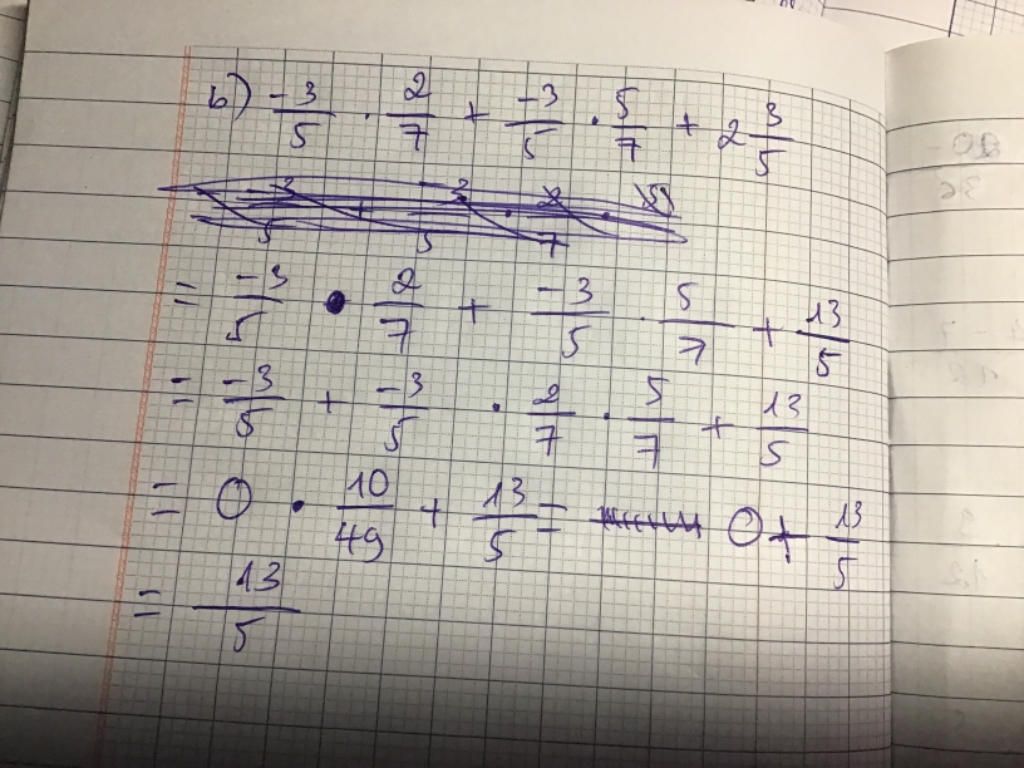 b) -3/5 · 2/7 + -3/5 · 5/7 + 2 3/5
= -3/5 · 2/7 + -3/5 · 5/7 + 13/5
= -3/5 + -3/5 · 2/7 · 5/7 + 13/5
= 0 · 10/49 + 13/5 = 0 + 13/5
= 13/5